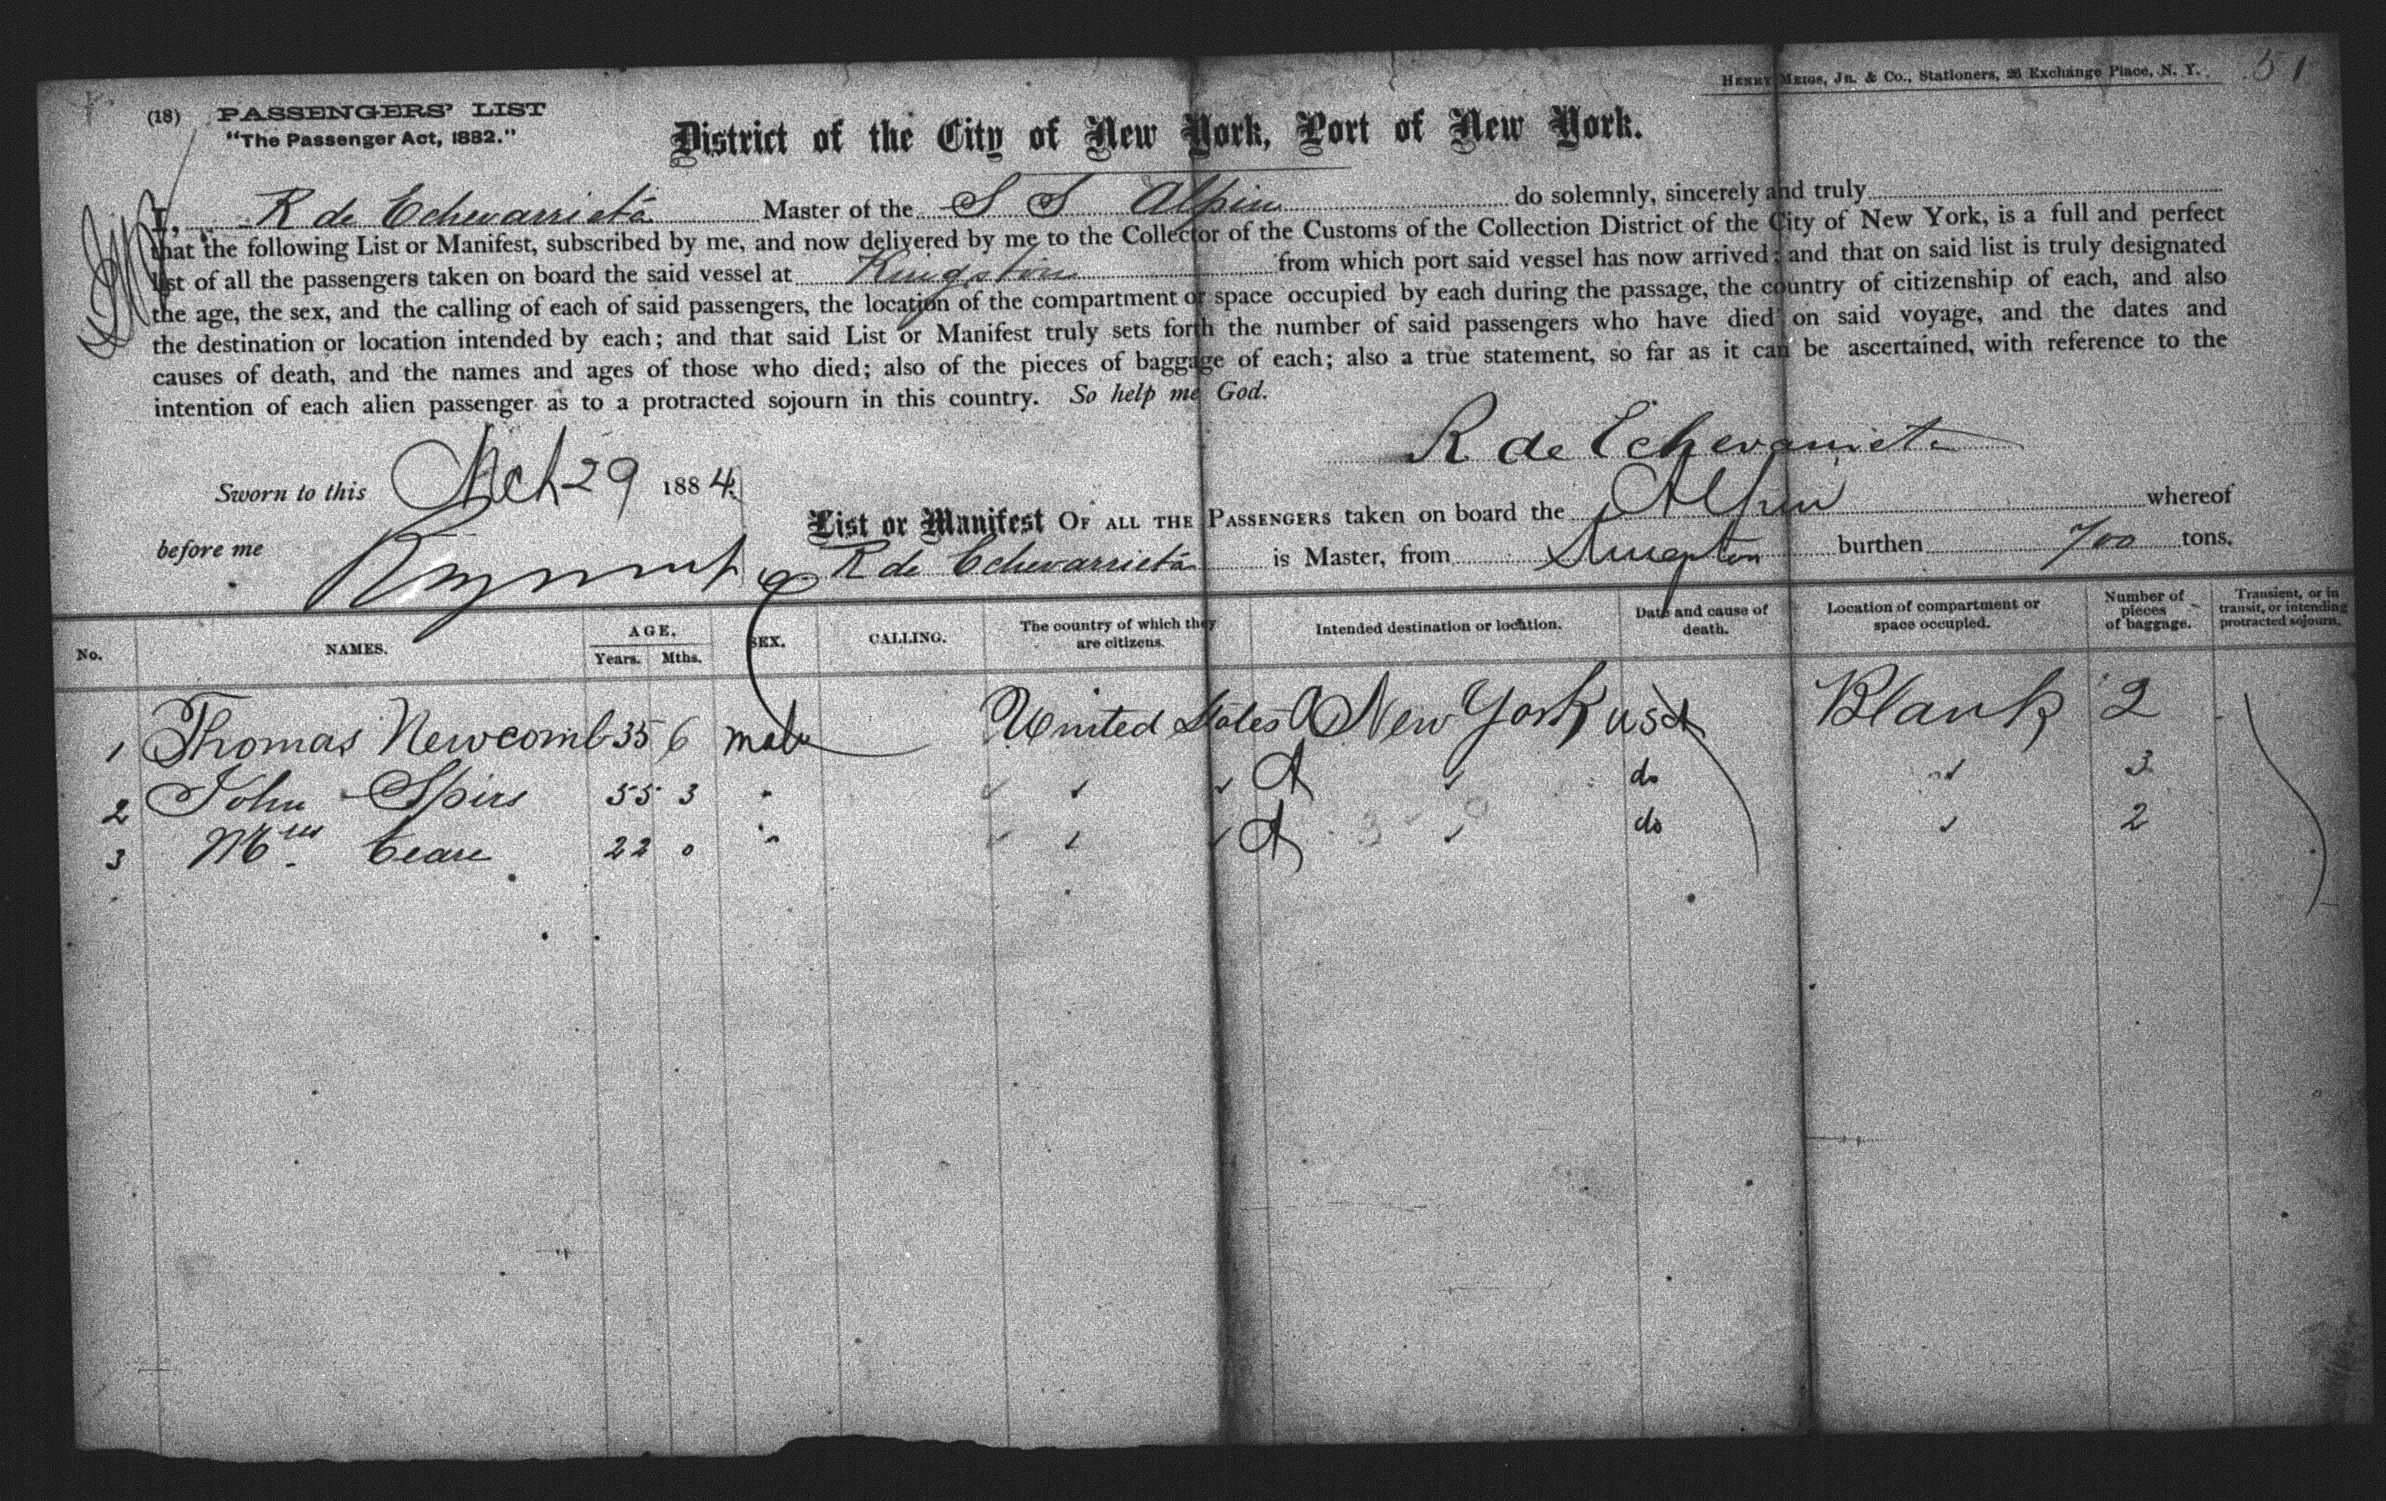 HENRY MEIGS, JR. & CO., Stationers, 26 Exchange Place, N. Y.
51
(18) PASSENGERS' LIST
"The Passenger Act, 1882."
District of the City of New York, Port of New York.
I, R de Echevarrieta Master of the S S Alpin do solemnly, sincerely and truly
that the following List or Manifest, subscribed by me, and now delivered by me to the Collector of the Customs of the Collection District of the City of New York, is a full and perfect
list of all the passengers taken on board the said vessel at Kingston from which port said vessel has now arrived; and that on said list is truly designated
the age, the sex, and the calling of each of said passengers, the location of the compartment or space occupied by each during the passage, the country of citizenship of each, and also
the destination or location intended by each; and that said List or Manifest truly sets forth the number of said passengers who have died on said voyage, and the dates and
causes of death, and the names and ages of those who died; also of the pieces of baggage of each; also a true statement, so far as it can be ascertained, with reference to the
intention of each alien passenger as to a protracted sojourn in this country. So help me God.
R de Echevarrieta
Sworn to this Mch 29 1884
List or Manifest OF ALL THE PASSENGERS taken on board the Alpin whereof
before me
R de Echevarrieta is Master, from Kingston burthen 700 tons.
No. NAMES. AGE. Years. Mths. SEX. CALLING. The country of which they are citizens. Intended destination or location. Date and cause of death. Location of compartment or space occupied. Number of pieces of baggage. Transient, or in transit, or intending protracted sojourn.
1 Thomas Newcomb 35 6 male United States A New York USA Blank 2
2 John Spirs 55 3 " ✓ ✓ ✓ A ✓ do ✓ 3
3 22 0 " ✓ ✓ ✓ A ✓ do ✓ 2